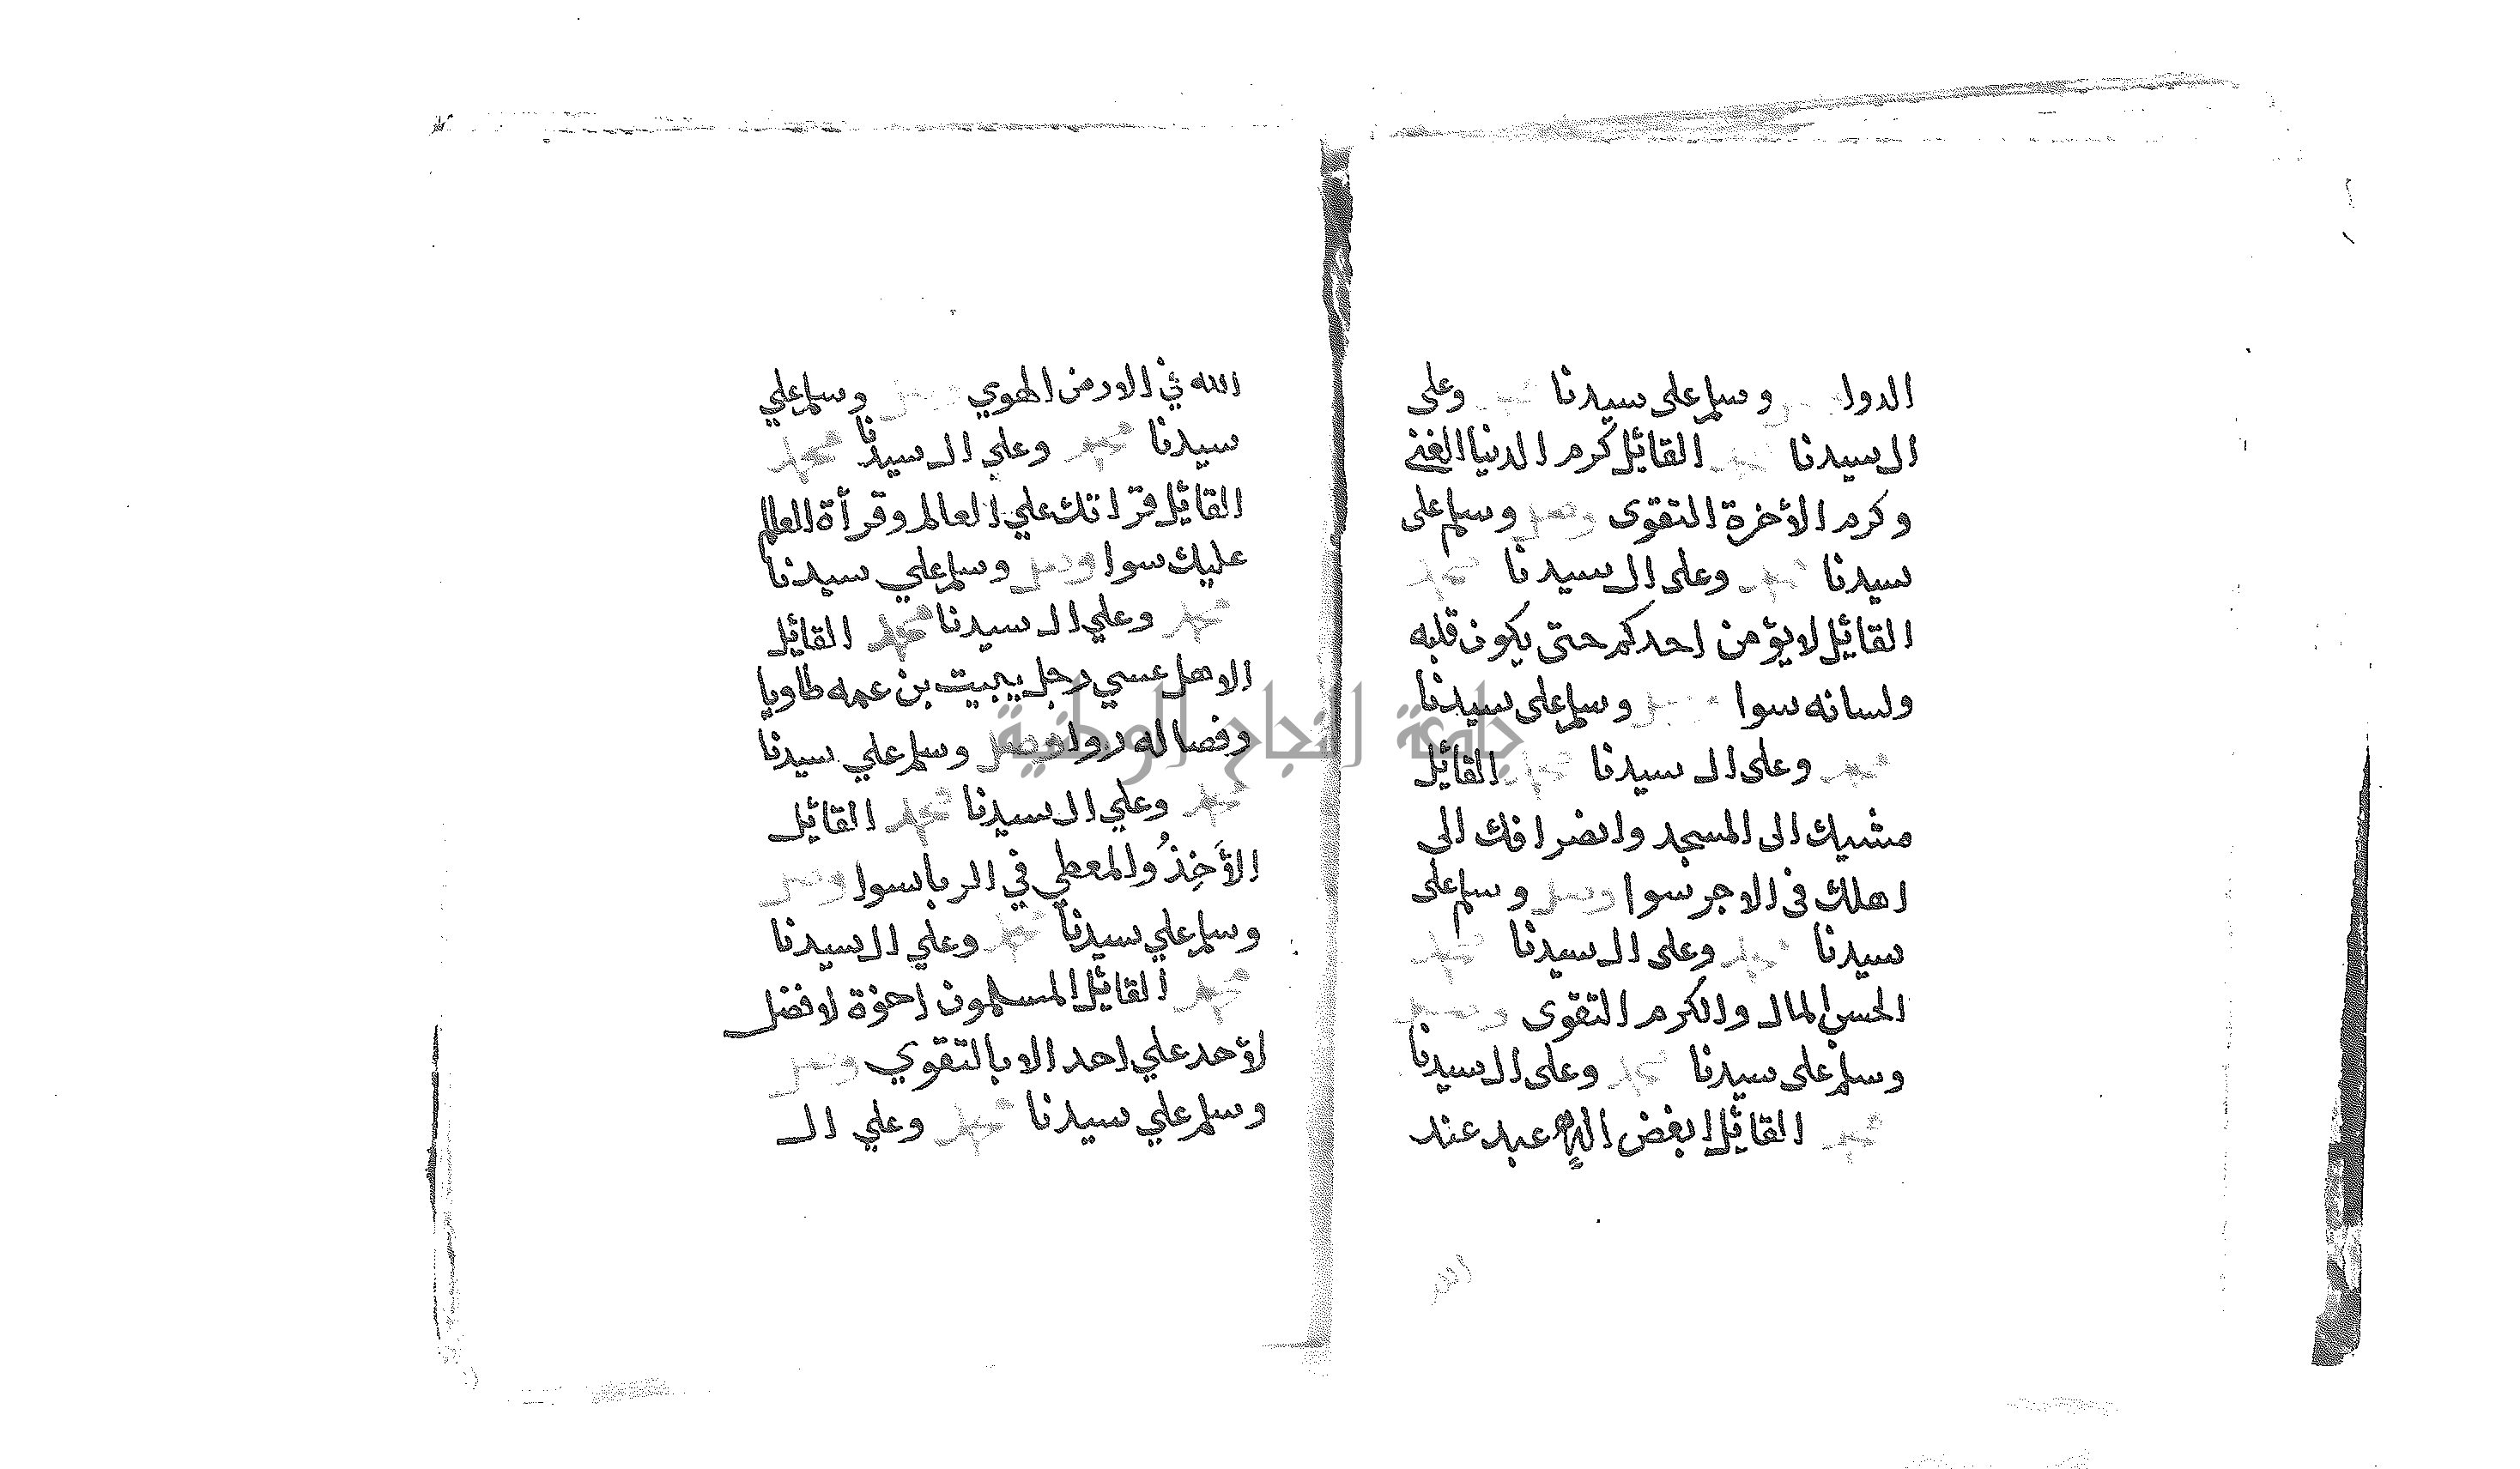 الدوا وصل وسلم على سيدنا محمد وعلى
ال سيدنا محمد القائل كرم الدنيا الغنى
وكرم الأخرة التقوى وصل وسلم على
سيدنا محمد وعلى ال سيدنا محمد
القائل لا يؤمن احدكم حتى يكون قلبه
ولسانه سوا وصل وسلم على سيدنا
محمد وعلى ال سيدنا محمد القائل
مشيك الى المسجد وانصرافك الى
اهلك فى الاجر سوا وصل وسلم على
سيدنا محمد وعلى ال سيدنا محمد
الحسب المال والكرم التقوى وصل
وسلم على سيدنا محمد وعلى ال سيدنا
محمد القائل ابغض اله عبد عند
الله
الله في الارض الهوي وصل وسلم علي
سيدنا محمد وعلي ال سيدنا محمد
القائل قراتك علي العالم وقرأة العالم
عليك سوا وصل وسلم علي سيدنا
محمد وعلي ال سيدنا محمد القائل
الا هل عسي رجل يبيت بن عمه طاويا
وفصاله روا وصل وسلم علي سيدنا
محمد وعلي ال سيدنا محمد القائل
الأَخِذُ والمعطي في الربا سوا وصل
وسلم علي سيدنا محمد وعلي ال سيدنا
محمد القائل المسلمون اخوة لا فضل
لأحد علي احد الا بالتقوي وصل
وسلم علي سيدنا محمد وعلي ال
جامعة النجاح الوطنية